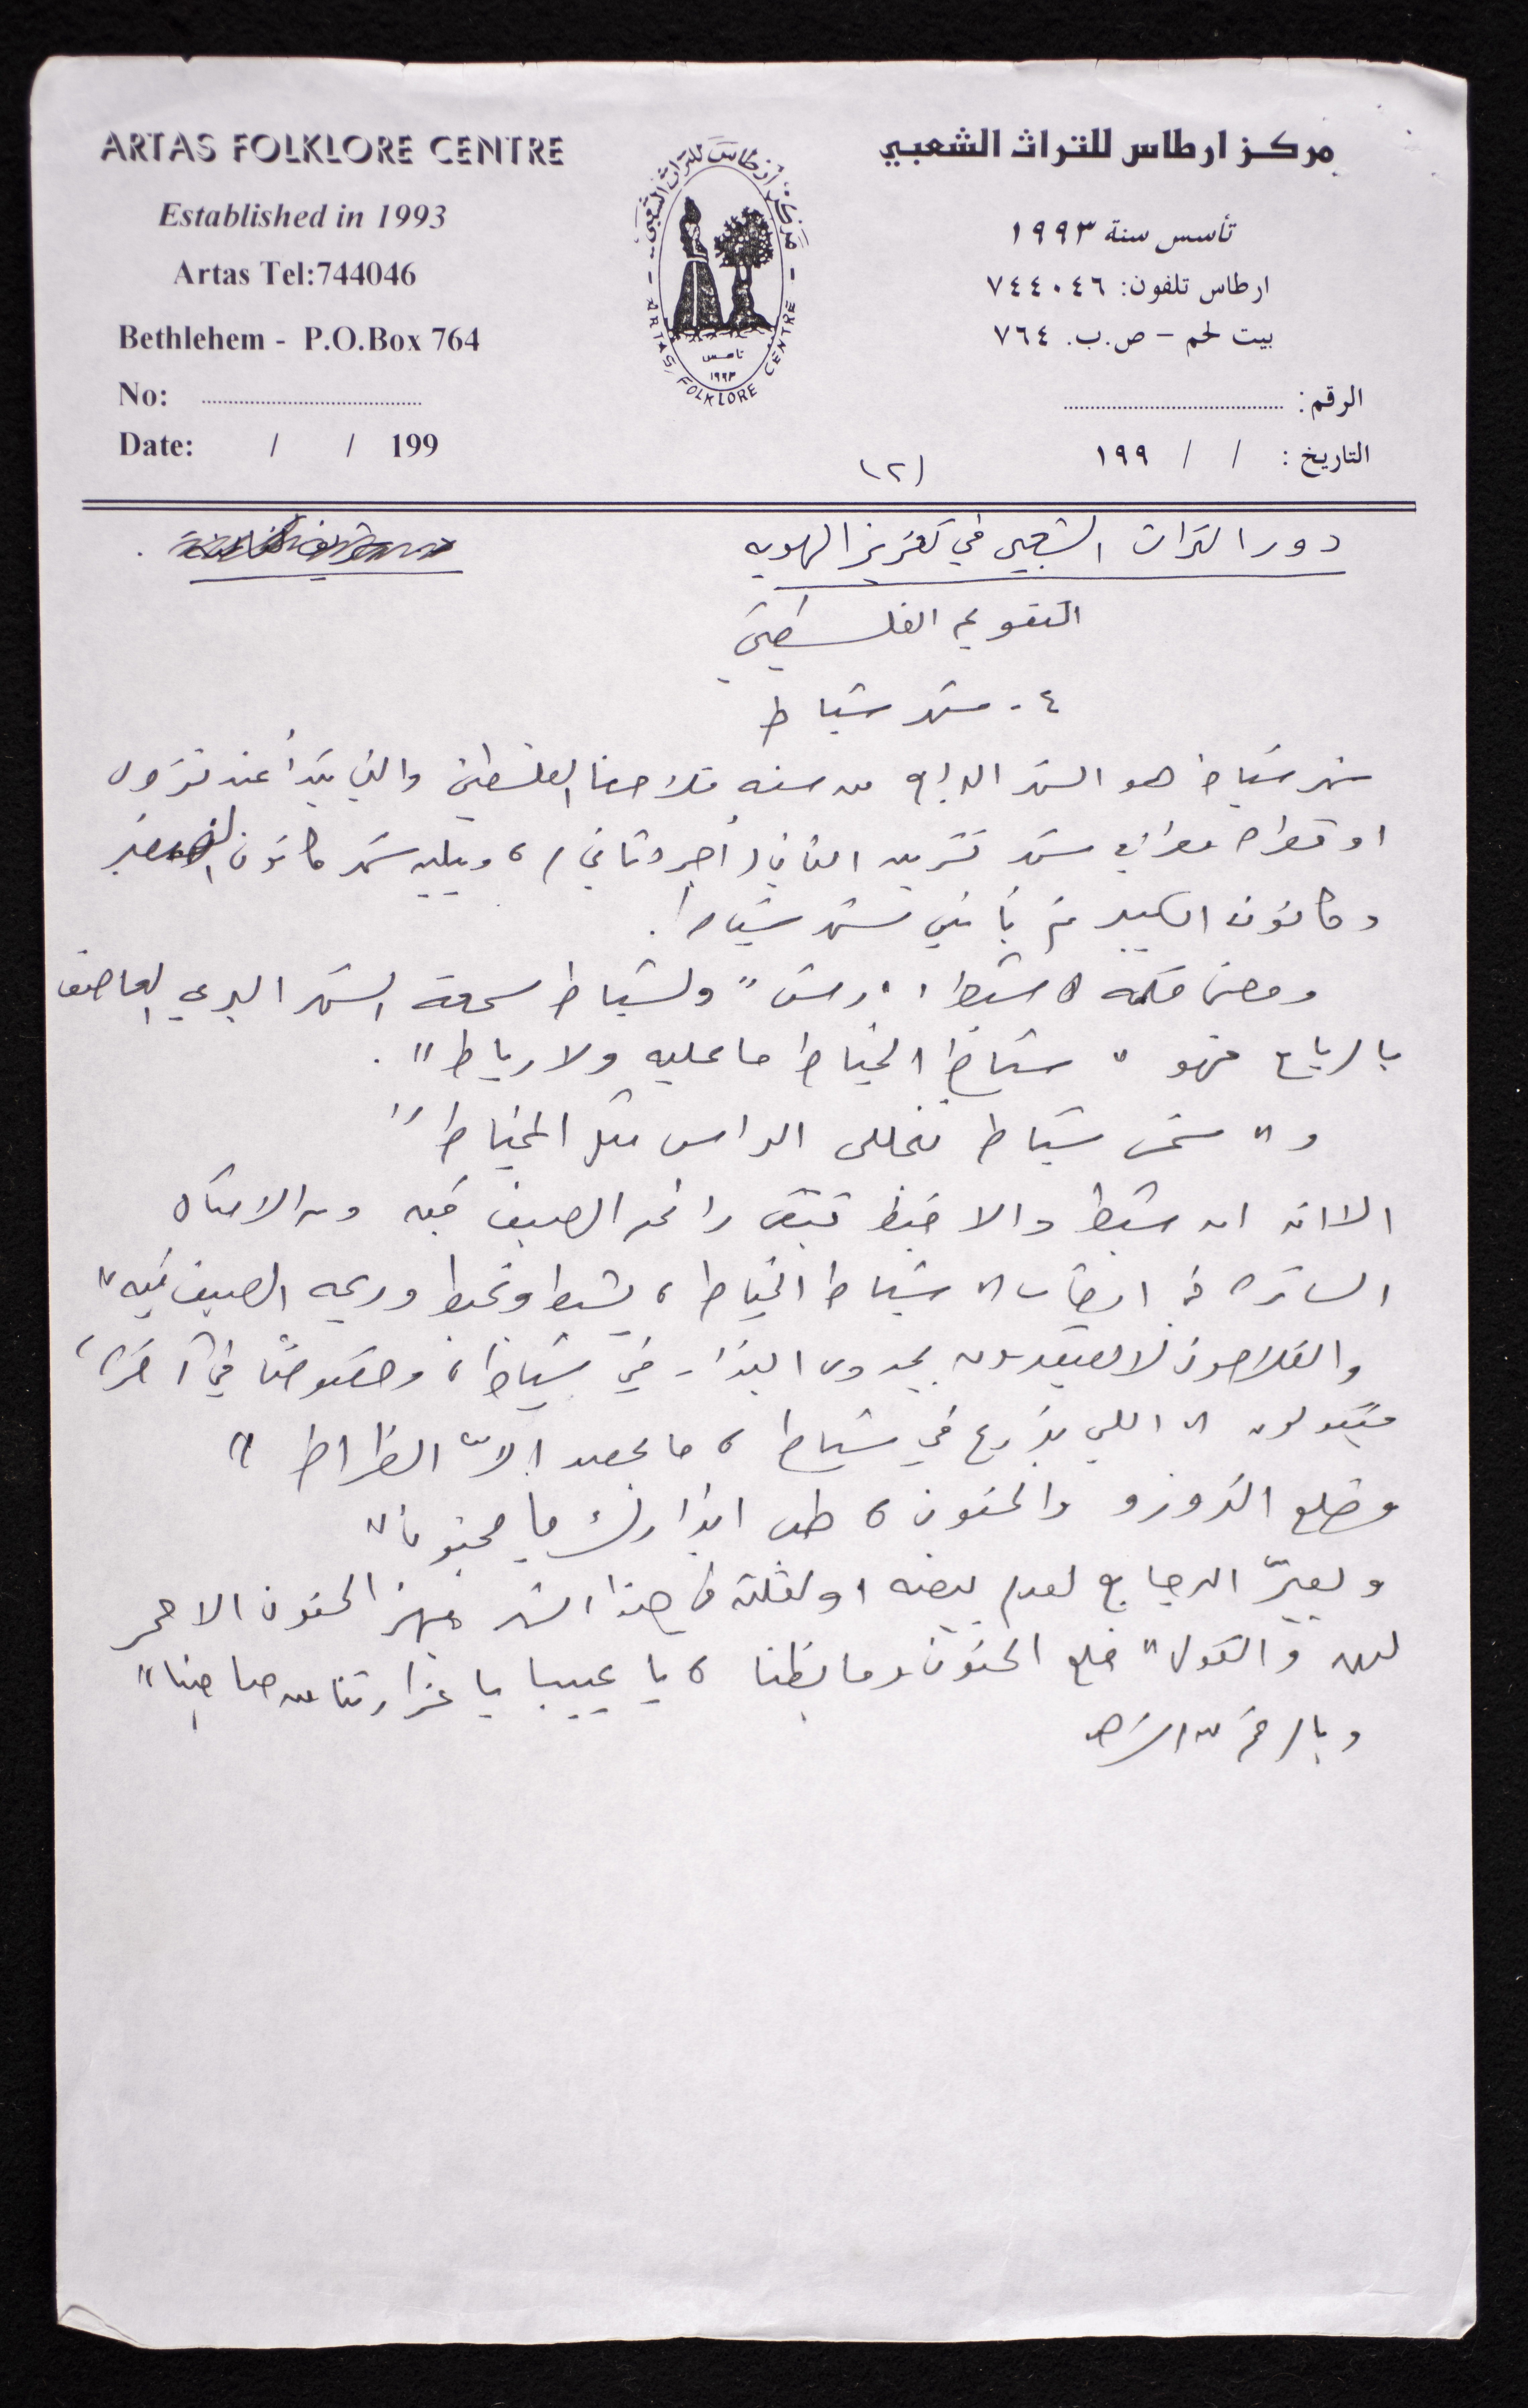 ARTAS FOLKLORE CENTRE
Established in 1993
Artas Tel:744046
Bethlehem - P.O.Box 764
No:
Date: / / 199
مركز ارطاس للتراث الشعبي
تأسس سنة ١٩٩٣
ارطاس تلفون: ٧٤٤٠٤٦
بيت لحم – ص.ب. ٧٦٤
الرقم:
التاريخ: / / ١٩٩
مركز أرطاس للتراث الشعبي
تأسس
١٩٩٣
ARTAS FOLKLORE CENTRE
(٢)
دور التراث الشعبي في تعزيز الهويه
التقويم الفلسطيني
٤ - شهر شباط
شهر شباط هو الشهر الرابع من سنه فلاحنا الفلسطيني والتي تبدأ عند نزول
او قطر شهر تشرين الثاني (أجرد ثاني)، ويليه شهر كانون الصغير
وكانون الكبير ثم يأتي شهر شباط.
ومعنى كلمه "شبط" ولشباط سمعة الشهر البردي العاصف
بالرياح فهو "شباط الخباط ما عليه ولا رباط".
و "شمس شباط تخلي الراس مثل المخباط"
الا انه ان شبط والا خبط تبقى رائحه الصيف فيه ومن الامثال
السائره في ارطاس "شباط الخباط، يشبط ويخبط وريحه الصيف فيه"
والفلاحون لا يعتقدون بجدوى البذار في شباط، وخصوصًا في آخره،
فيقولون "اللي بزرع في شباط، ما بحصد إلاّ الظراط"
وطلع الزوزو والحنون، طب ابذارك يا مجنون"
ويعيّر الدجاج لعدم بيضه او لقلته في هذا الشهر الحنون الاحمر
لهن والقول "طلع الحنون وما بظنا، يا عيبا يا عزارتنا من صاحبنا"
وبالرغم من